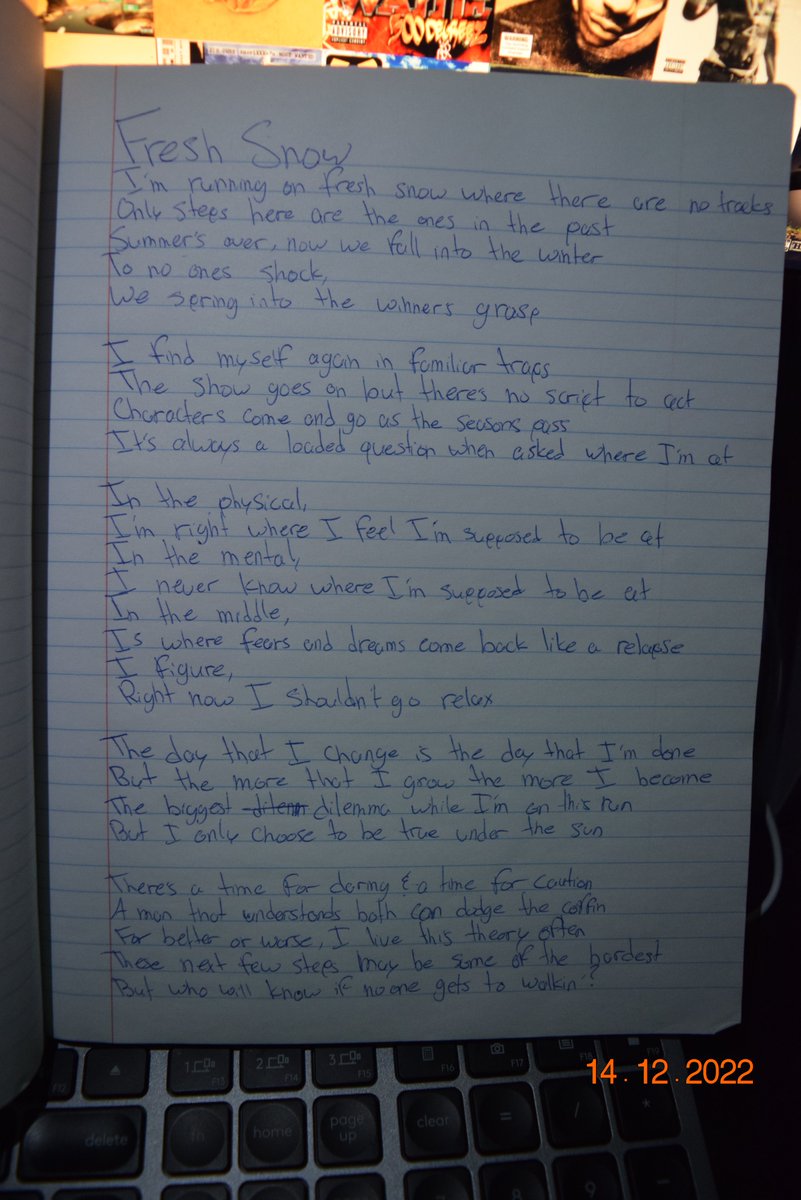 500 DEGREEZ
PARENTAL
ADVISORY
EXPLICIT CONTENT
Fresh Snow
I'm running on fresh snow where there are no tracks
Only steps here are the ones in the past
Summer's over, now we fall into the winter
To no ones shock,
We spring into the winners grasp
I find myself again in familiar traps
The show goes on but there's no script to act
Characters come and go as the seasons pass
It's always a loaded question when asked where I'm at
In the physical,
I'm right where I feel I'm supposed to be at
In the mental,
I never know where I'm supposed to be at
In the middle,
Is where fears and dreams come back like a relapse
I figure,
Right now I shouldn't go relax
The day that I change is the day that I'm done
But the more that I grow the more I become
The biggest dilemma while I'm on this run
But I only choose to be true under the sun
There's a time for daring & a time for caution
A man that understands both can dodge the coffin
For better or worse, I live this theory often
These next few steps may be some of the hardest
But who will know if no one gets to walkin'?
14.12.2022
F12
1
F13
2
F14
3
F15
F16
F17
F18
F19
delete
fn
home
page
up
clear
=
/
*
8
9
-